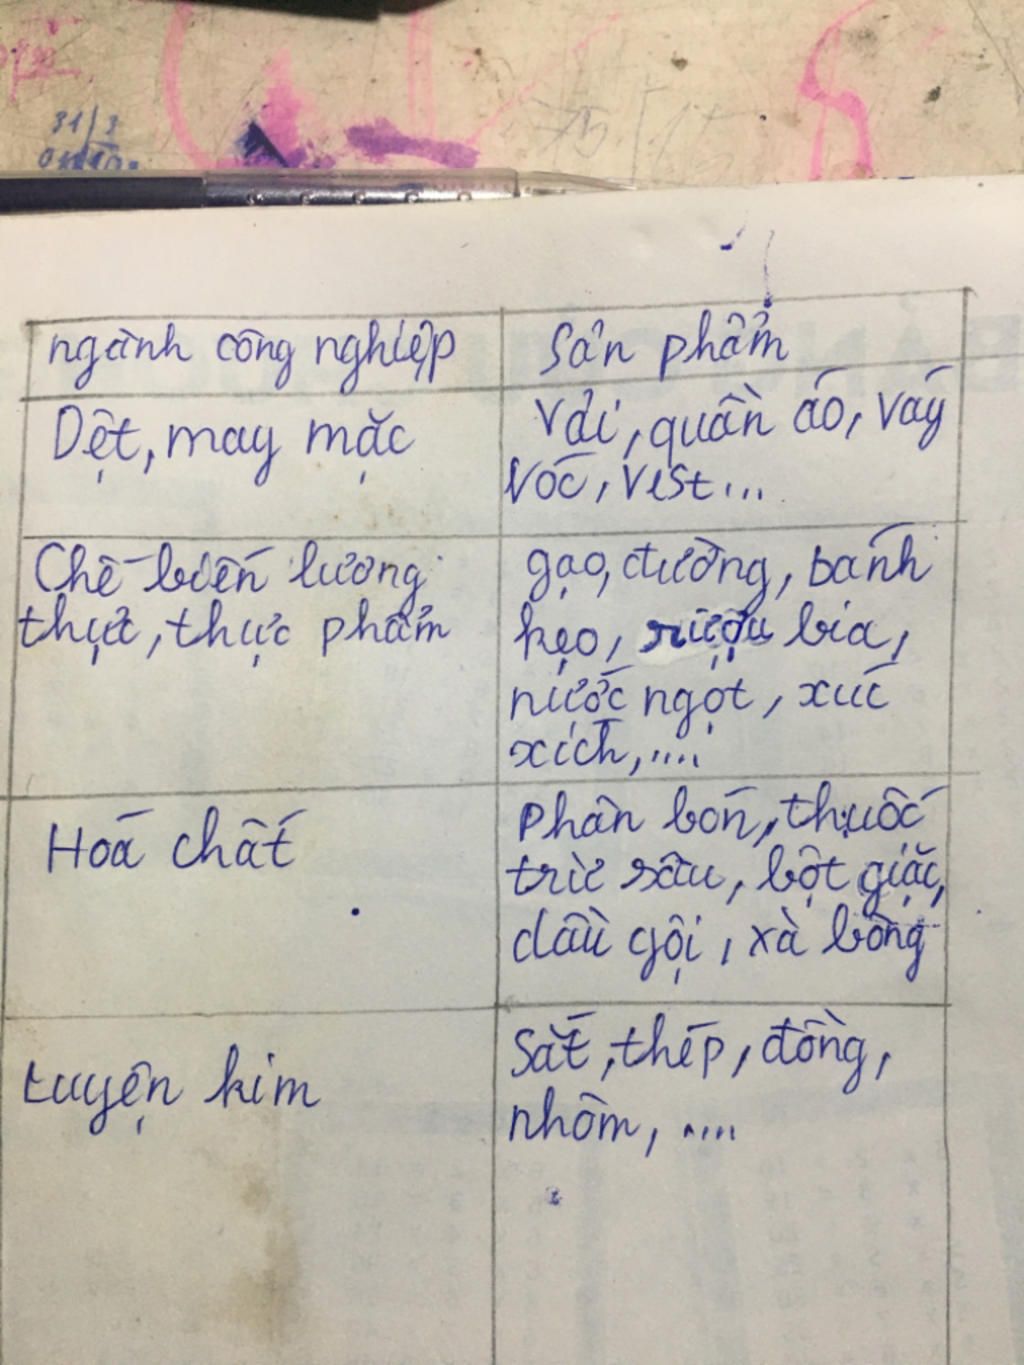 ngành công nghiệp
Sản phẩm
Dệt, may mặc
Vải, quần áo, váy
Vóc, Vest...
Chế biến lương
thực, thực phẩm
gạo, đường, bánh
kẹo, rượu bia,
nước ngọt, xúc
xích,....
Hoá chất
phân bón, thuốc
trừ sâu, bột giặt,
dầu gội, xà bông
tuyện kim
Sắt, thép, đồng,
nhôm, ....
31/3